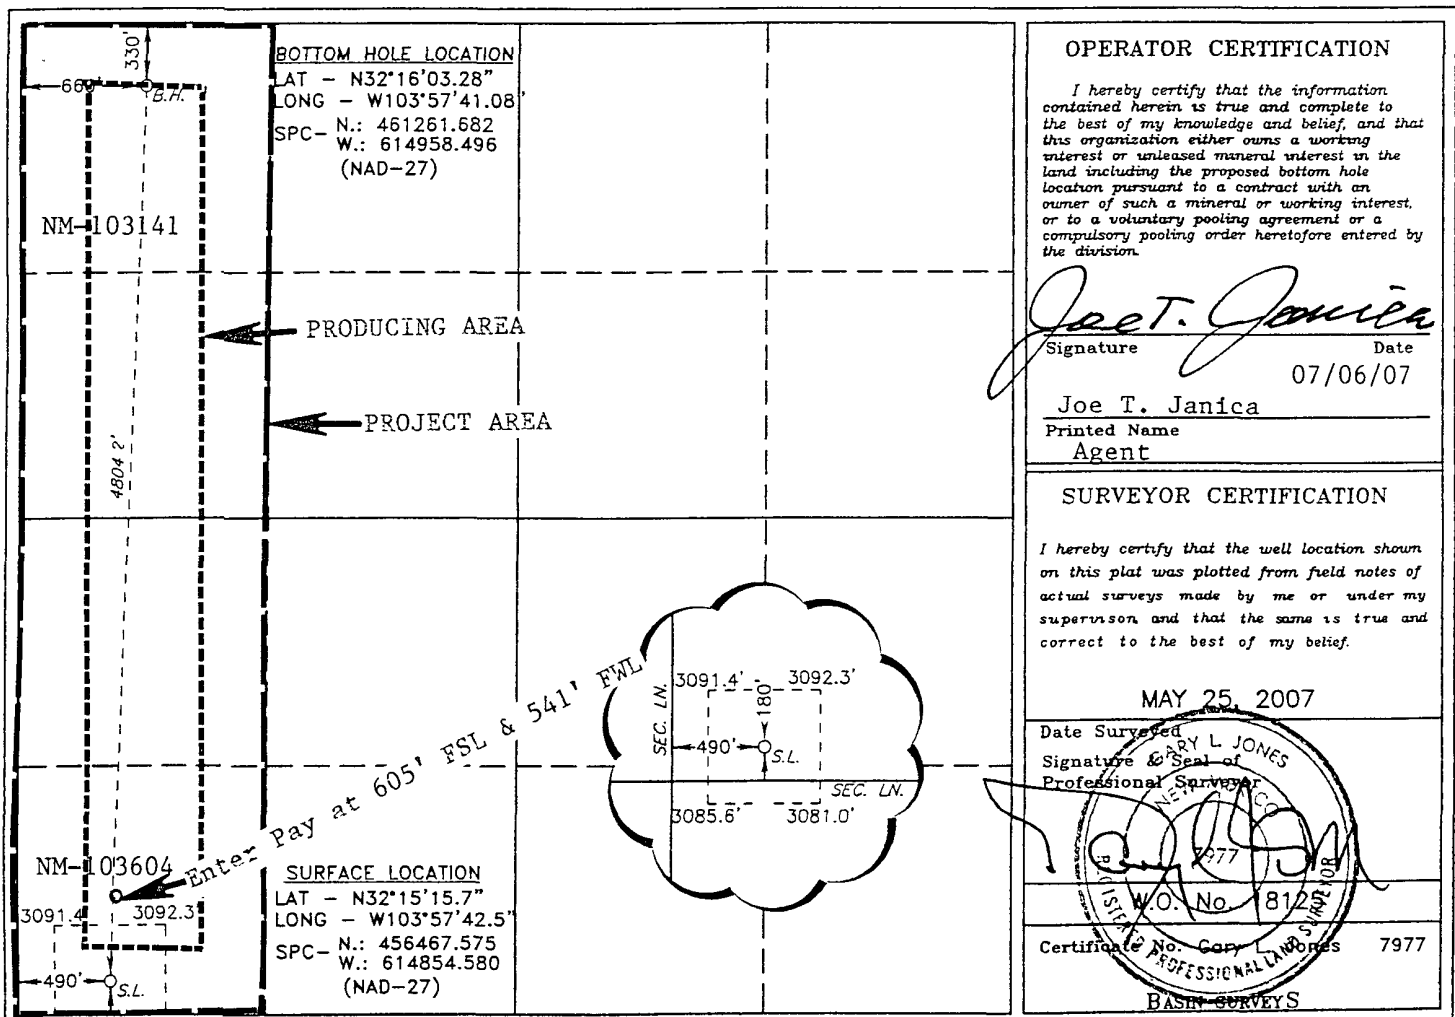 330'
B.H.
BOTTOM HOLE LOCATION
LAT – N32°16'03.28"
LONG – W103°57'41.08"
SPC– N.: 461261.682
W.: 614958.496
(NAD–27)
NM-103141
PRODUCING AREA
PROJECT AREA
4804 2'
Enter Pay at 605' FSL & 541' FWL
NM-103604
3091.4' 3092.3'
490'
S.L.
SURFACE LOCATION
LAT – N32°15'15.7"
LONG – W103°57'42.5"
SPC– N.: 456467.575
W.: 614854.580
(NAD–27)
SEC. LN.
3091.4' 3092.3'
180'
490'
S.L.
SEC. LN.
3085.6' 3081.0'
OPERATOR CERTIFICATION
I hereby certify that the information
contained herein is true and complete to
the best of my knowledge and belief, and that
this organization either owns a working
interest or unleased mineral interest in the
land including the proposed bottom hole
location pursuant to a contract with an
owner of such a mineral or working interest,
or to a voluntary pooling agreement or a
compulsory pooling order heretofore entered by
the division.
Joe T. Janica
Signature Date
07/06/07
Joe T. Janica
Printed Name
Agent
SURVEYOR CERTIFICATION
I hereby certify that the well location shown
on this plat was plotted from field notes of
actual surveys made by me or under my
supervison, and that the same is true and
correct to the best of my belief.
MAY 25, 2007
Date Surveyed
Signature & Seal of
Professional Surveyor
GARY L. JONES
NEW MEXICO
7977
REGISTERED PROFESSIONAL LAND SURVEYOR
W.O. No.
Certificate No. Gary L. Jones 7977
BASIN SURVEYS